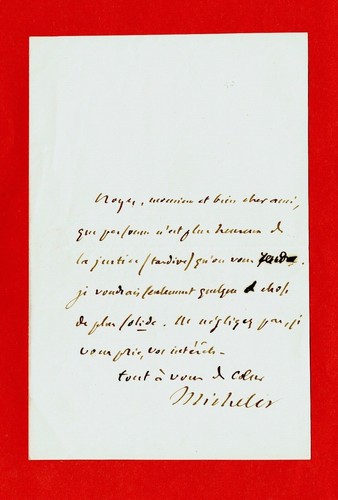 Croyez, monsieur et bien cher ami,
que personne n'est plus heureux de
la justice (tardive) qu'on vous rende.
je voudrais seulement quelque chose
de plus solide. Ne négligez pas, je
vous prie, vos intérêts.
tout à vous de cœur
Michelet